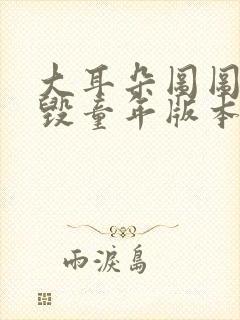 大耳朵图图
毁童年版本
雨淚島